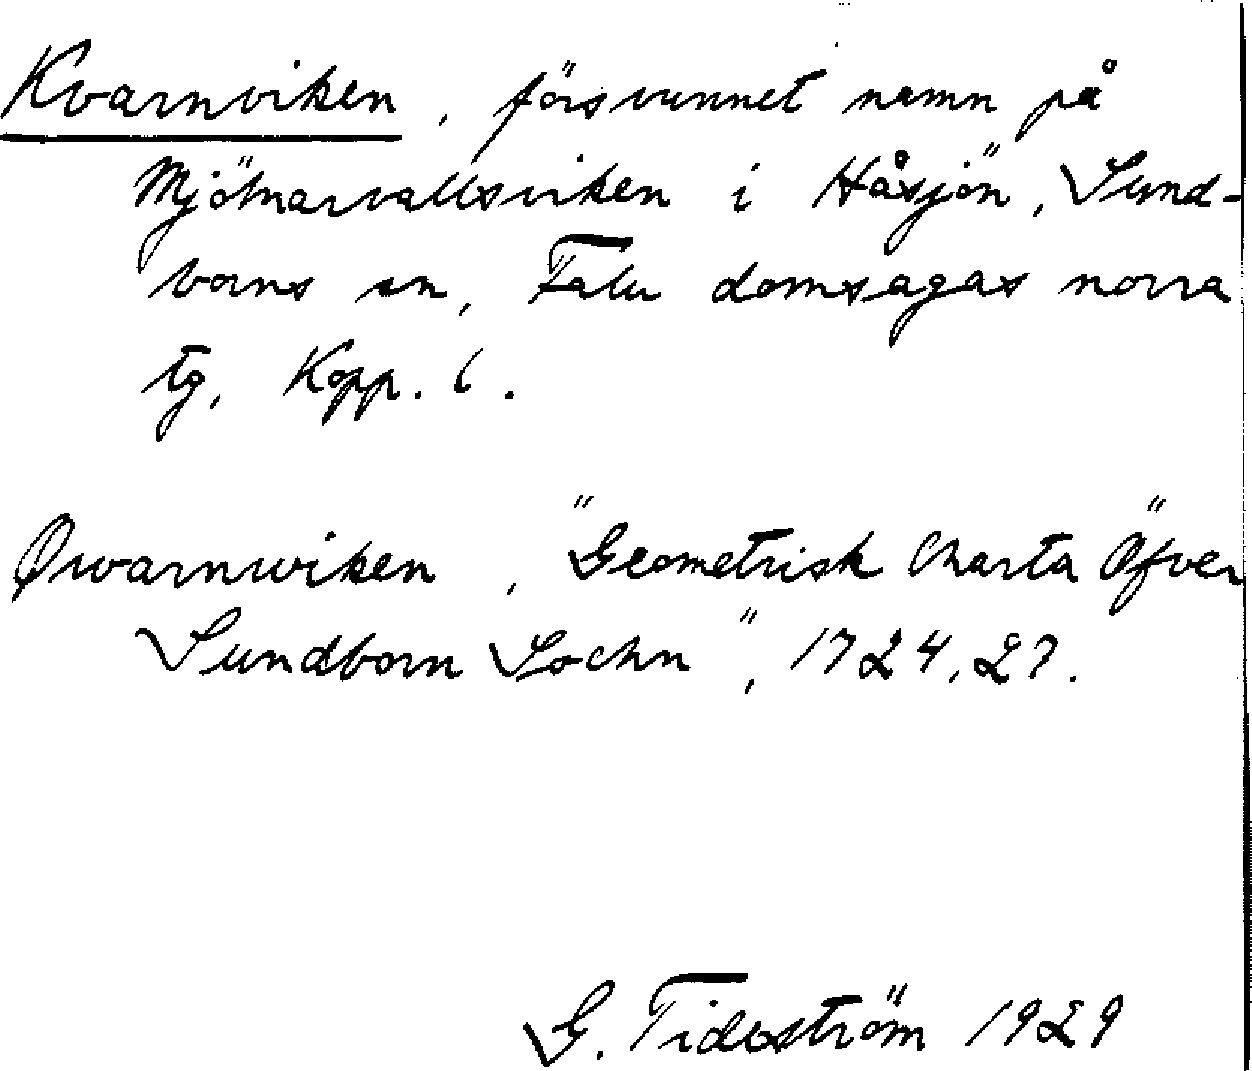 Kvarnviken, försvunnet namn på
Mjölnarvallsviken i Håsjön, Sund-
borns sn, Falu domsagas norra
tg, Kopp. l.
Qwarnwiken, "Geometrisk Charta Öfver
Sundborn Sochn", 1724,27.
G. Tideström 1929